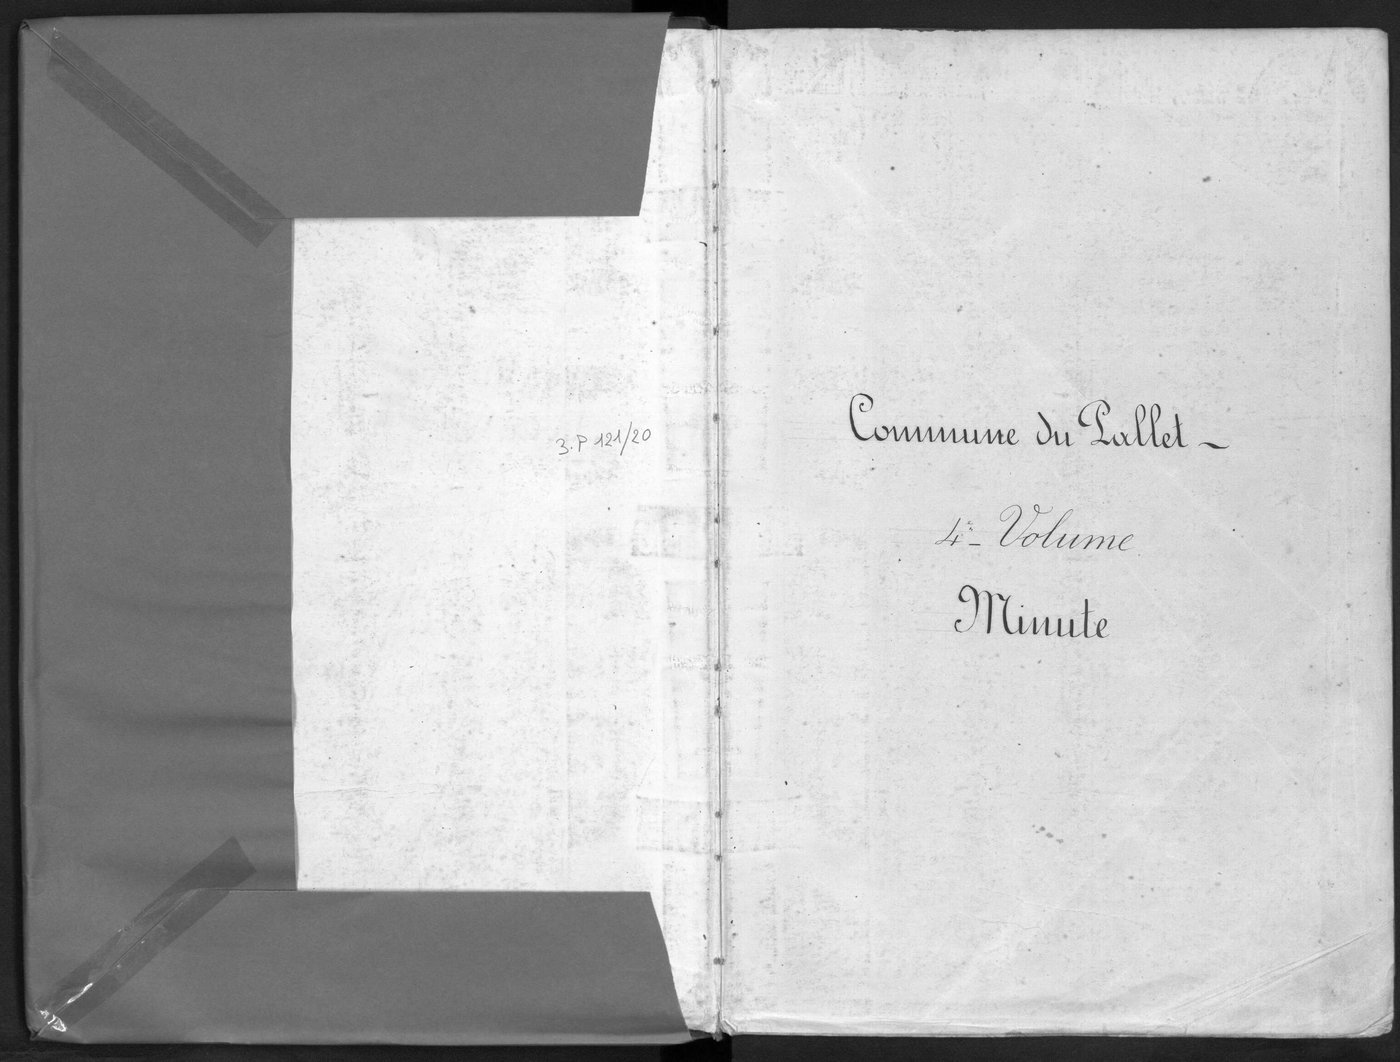 3.P 121/20
Commune du Pallet -
4e - Volume
Minute